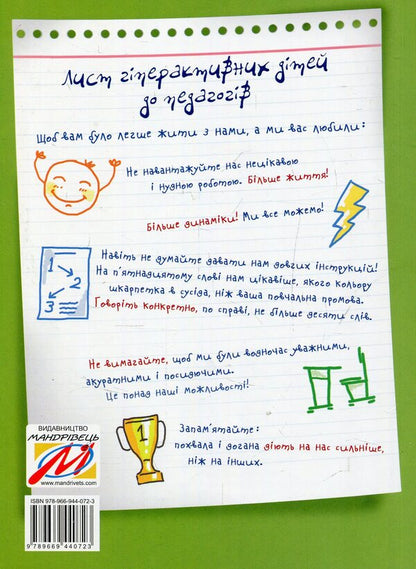 Лист гіперактивних дітей
до педагогів
Щоб вам було легше жити з нами, а ми вас любили:
Не навантажуйте нас нецікавою
і нудною роботою. Більше життя!
Більше динаміки! Ми все можемо!
1
2
3
Навіть не думайте давати нам довгих інструкцій!
На п'ятнадцятому слові нам цікавіше, якого кольору
шкарпетка в сусіда, ніж ваша повчальна промова.
Говоріть конкретно, по справі, не більше десяти слів.
Не вимагайте, щоб ми були водночас уважними,
акуратними і посидючими.
Це понад наші можливості!
1
Запам'ятайте:
похвала і догана діють на нас сильніше,
ніж на інших.
ВИДАВНИЦТВО
МАНДРІВЕЦЬ
М
www.mandrivets.com
ISBN 978-966-944-072-3
9 789669 440723